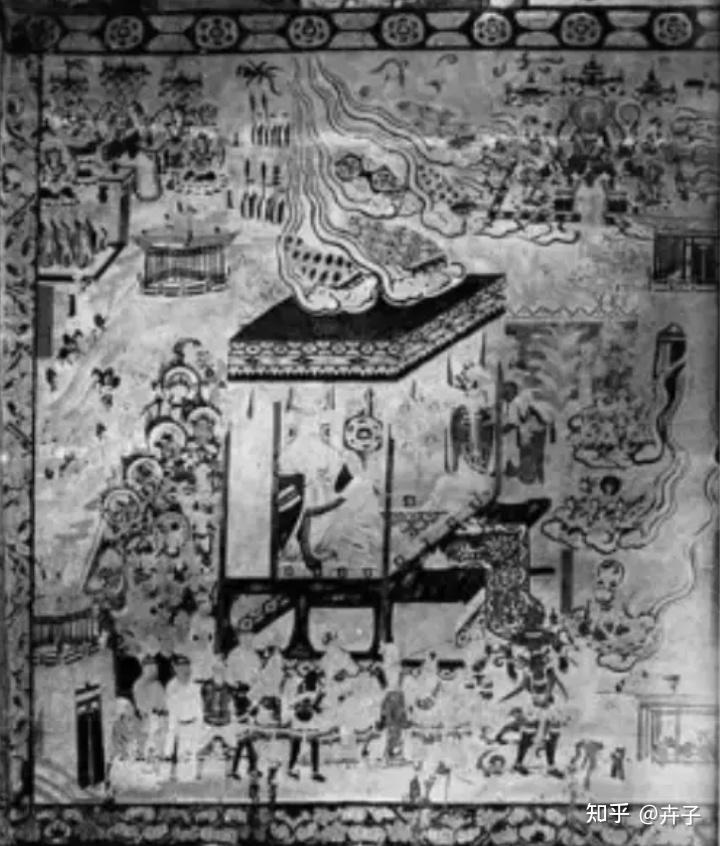 知乎 @卉子